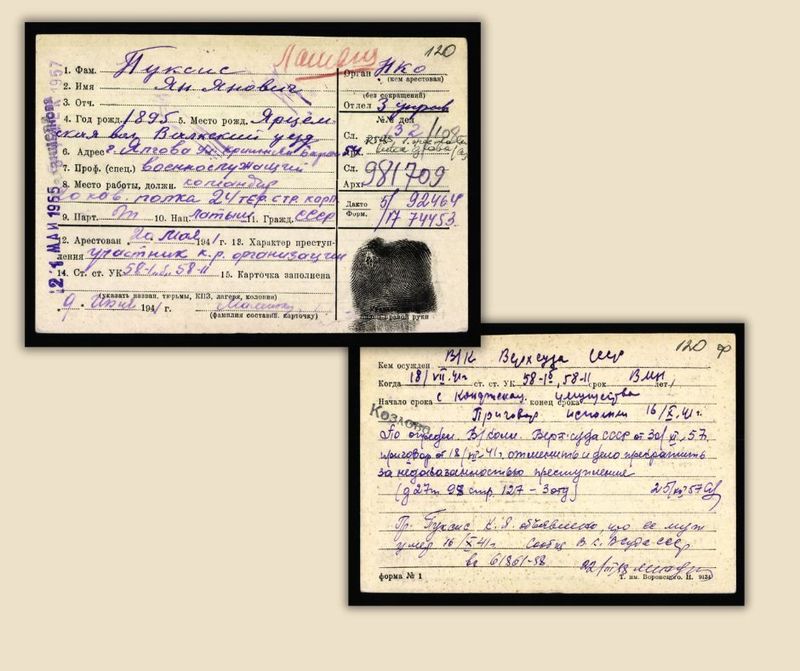 120
1. Фам. Пуксис
Орган НКО
(кем арестован)
2. Имя Ян Янович
(без сокращений)
3. Отч.
Отдел 3 управ
4. Год рожд. 1895 5. Место рожд. Ярцем-
№№ дел
Сл. 32/108
ская вол Валкский уезд
6. Адрес г. Ялгова ул.
7. Проф. (спец.) военнослужащий
Сл.
8. Место работы, должн. командир
Арх. 981709
20 кав. полка 24 тер. стр. корп.
Дакто 5/92464
9. Парт. 10. Нац. латыш 11. Гражд. СССР
Форм. /17 74453
12. Арестован 20 мая 1941 г. 13. Характер преступ-
ления участник к.р. организации
14. Ст. ст. УК 58-1 58-11 15. Карточка заполнена
(указать назван. тюрьмы, КПЗ, лагеря, колонии)
9. июля 1941 г.
(фамилия составил. карточку)
правой руки
21 МАЙ 1955
1957
120
Кем осужден В/К Верхсуда СССР
Когда 18/VII-41г ст. ст. УК 58-1б, 58-11 срок ВМН лет
Начало срока с конфискац. конец срока имущества
Приговор исполнен 16/X-41г.
Козлова
По определ. В/колл. Верх-суда СССР от 30/XI-57,
приговор от 18/VII-41г. отменить и дело прекратить
за недоказанностью преступление
(д 27т 98 стр. 127 - 3отд) 25/XII 57
Гр. Пуксис К. Я. объявлено, что ее муж
умер 16/X-41г. Сообщ В.К. Верх СССР
61861-58
форма № 1
Т. им. Воровского. Н. 9124